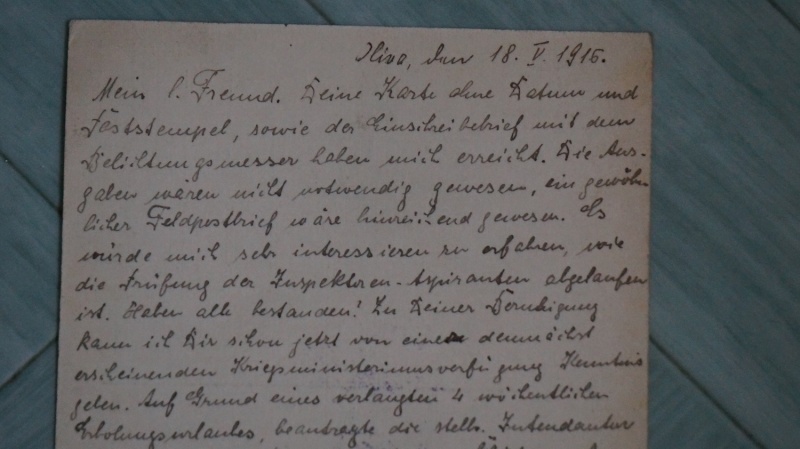 Oliva, den 18. V. 1915.
Mein l. Freund. Deine Karte ohne Datum und
Poststempel, sowie der Einschreibebrief mit dem
Belichtungsmesser haben mich erreicht. Die Aus-
gaben wären nicht notwendig gewesen, ein gewöhn
licher Feldpostbrief wäre hinreichend gewesen. Es
würde mich sehr interessieren zu erfahren, wie
die Prüfung der Inspektoren-Aspiranten abgelaufen
ist. Haben alle bestanden? Zu Deiner Beruhigung
kann ich Dir schon jetzt von einer demnächst
erscheinenden Kriegsministeriumsverfügung Kenntnis
geben. Auf Grund eines verlangten 4 wöchentlichen
Erholungsurlaubes, beantragte die stellv. Intendantur